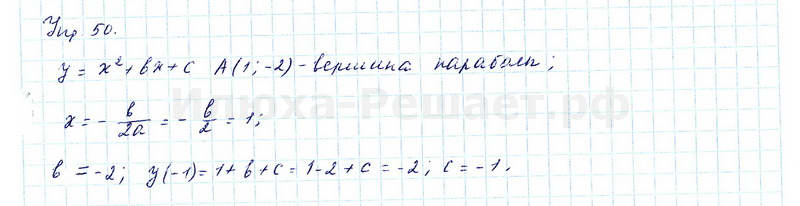 Упр 50.
y = x² + bx + c A(1; -2) - вершина параболы;
x = - b/2a = - b/2 = 1;
b = -2; y(-1) = 1 + b + c = 1 - 2 + c = -2; c = -1.
Илюха-Решает.рф